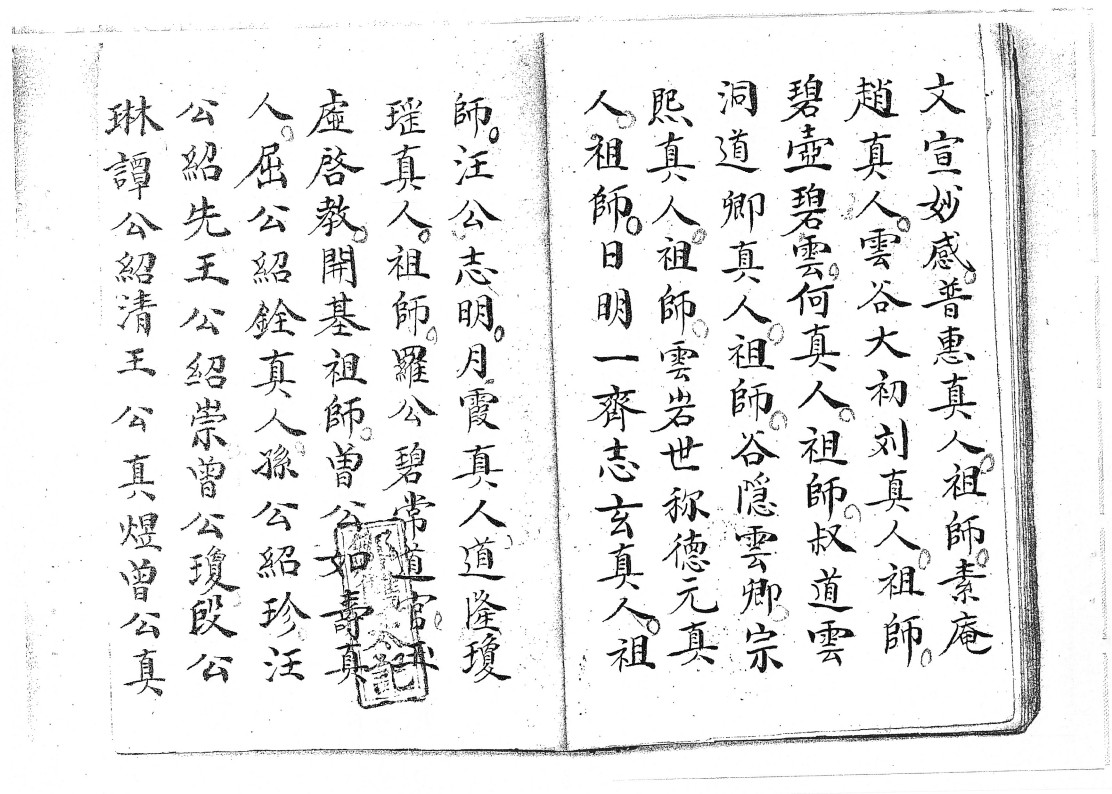 文宣妙感。普惠真人。祖師。素庵
趙真人。雲谷大初刘真人。祖師。
碧壺碧雲。何真人。祖師。叔道雲
洞道卿真人。祖師。谷隠雲卿。宗
熙真人。祖師。雲岩世称德元真
人。祖師。日明一齊志玄真人。祖
師。汪公志明。月霞真人道隆瓊
瑤真人。祖師。羅公碧常道官。玉
虛啓教。開基祖師。曾公如壽真
人。屈公紹銓真人。孫公紹珍汪
公紹先王公紹崇曾公瓊段公
琳譚公紹清王公真煜曾公真
記